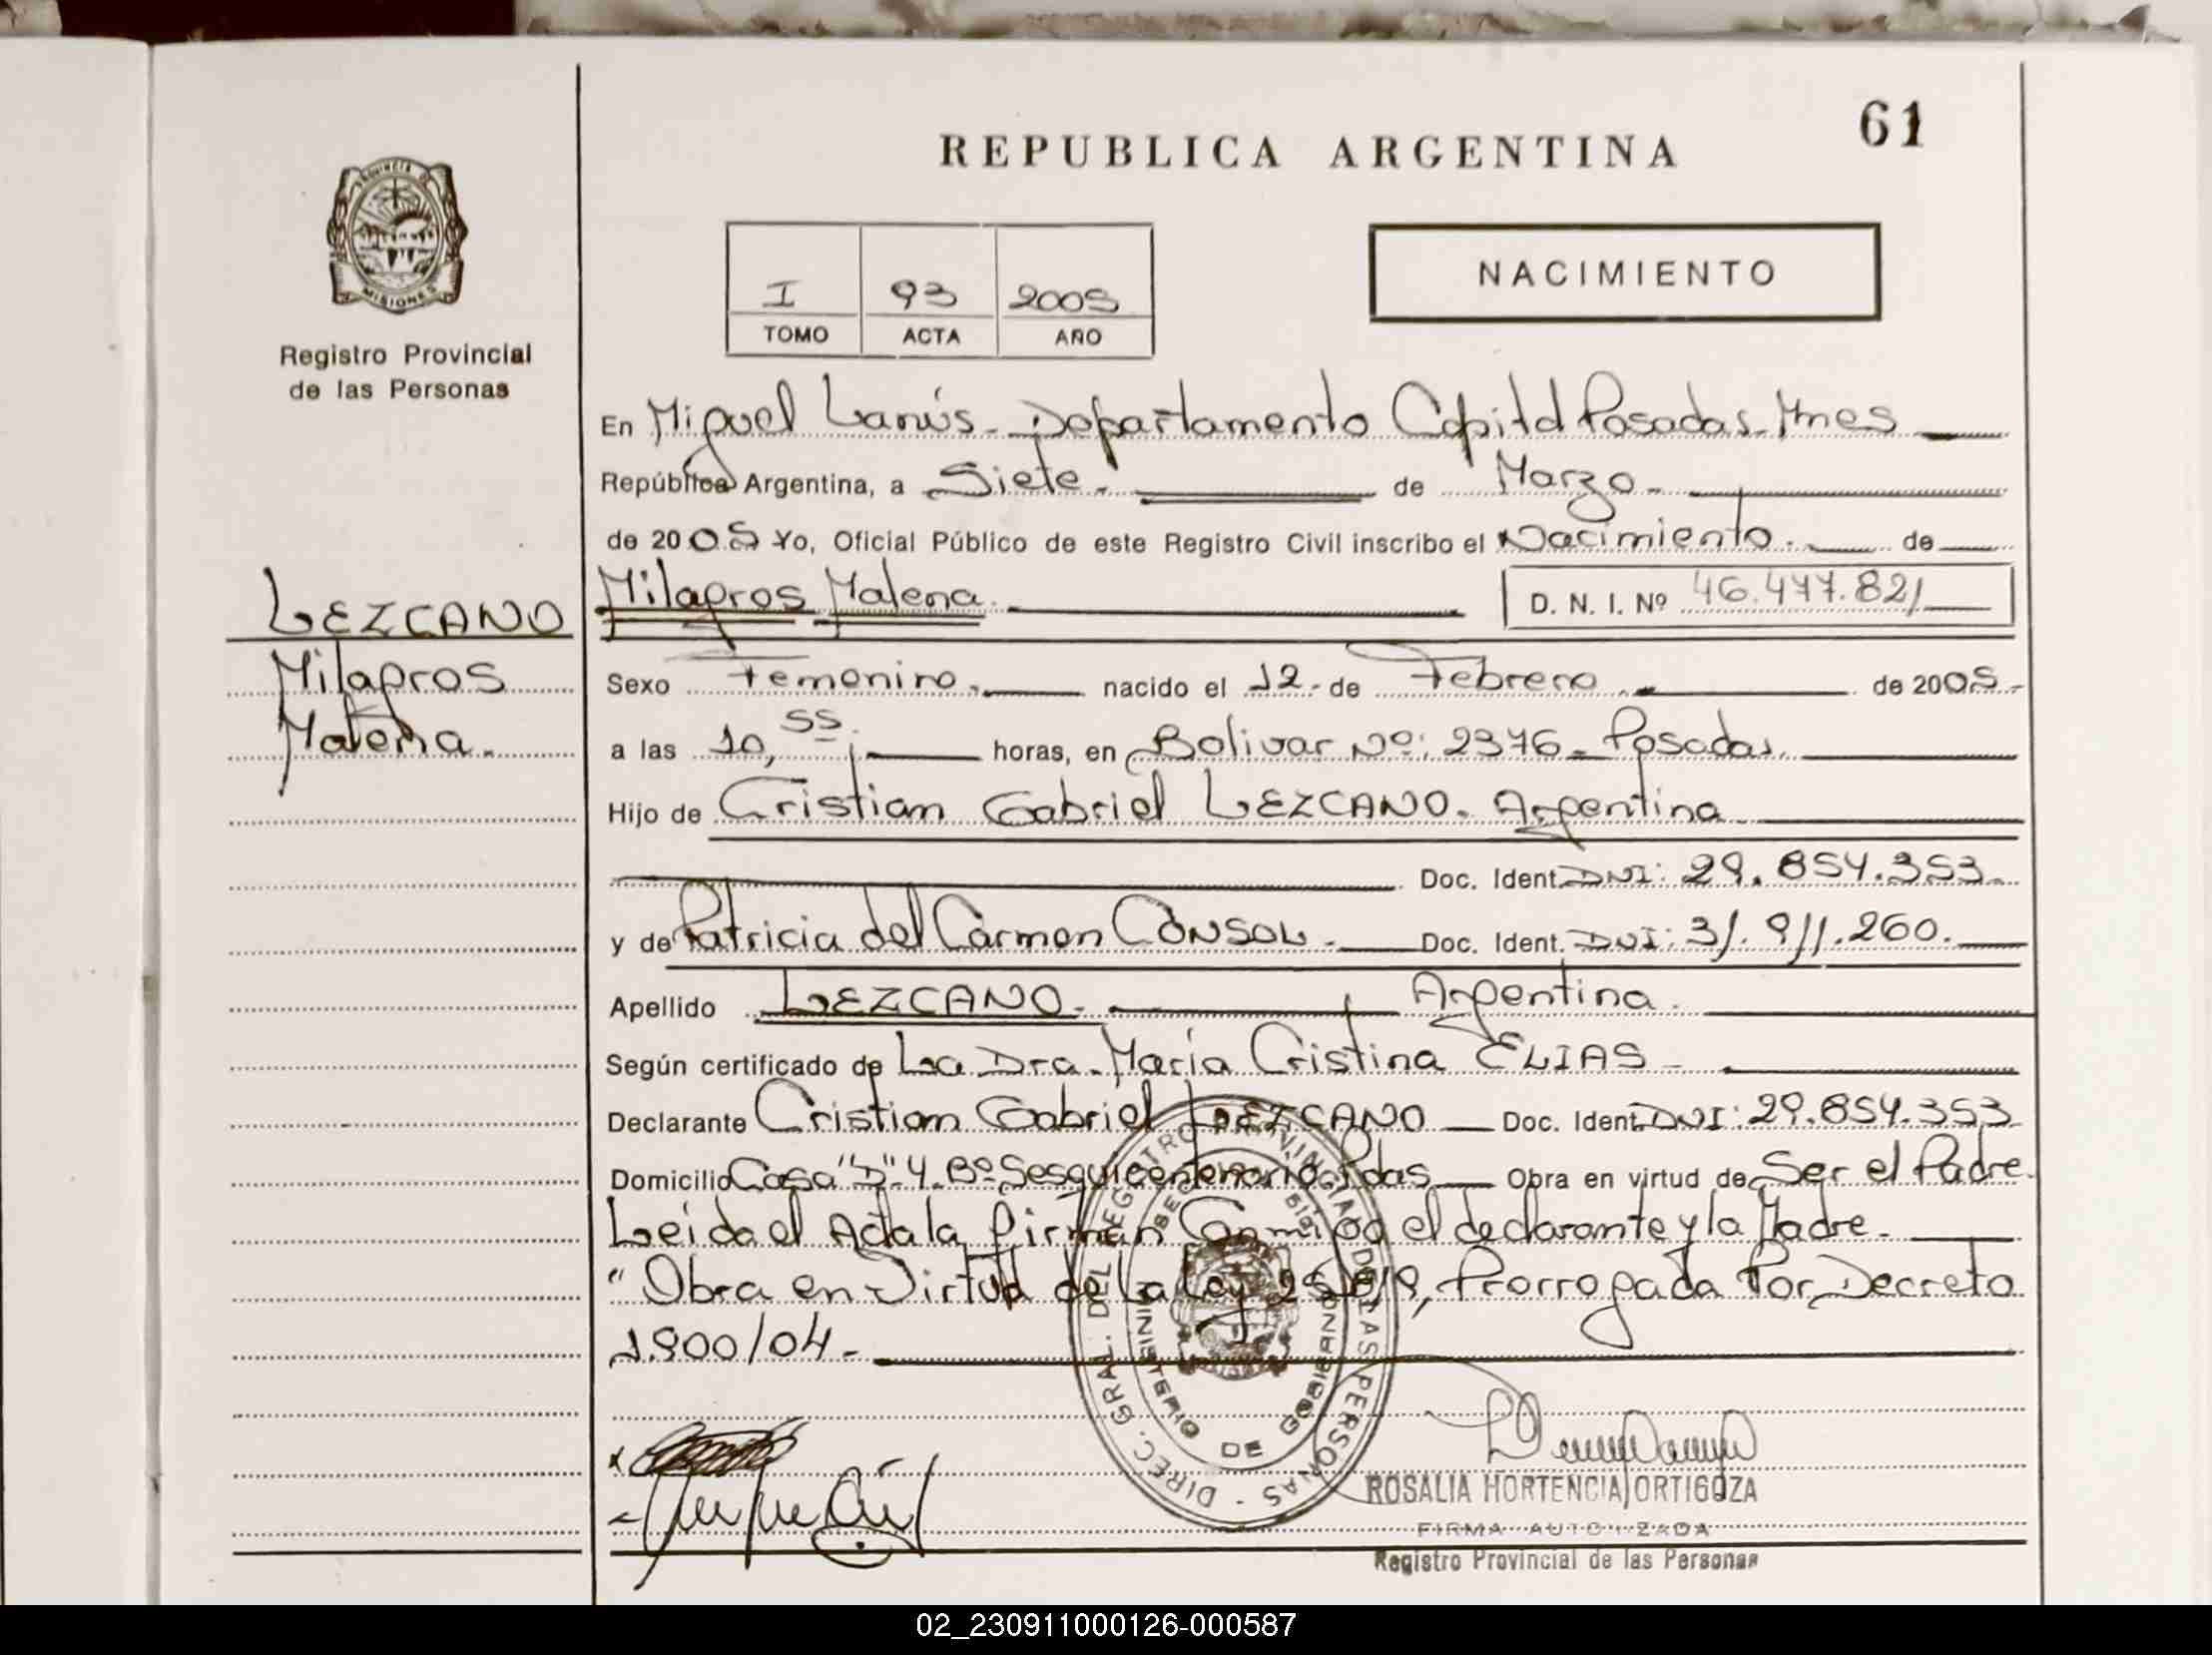 61
REPUBLICA ARGENTINA
PROVINCIA D
MISIONES
Registro Provincial
de las Personas
NACIMIENTO
I 93 2005
TOMO ACTA AÑO
En Miguel Lanús - Departamento Capital Posadas - Mnes
República Argentina, a Siete - de Marzo -
de 2005 Yo, Oficial Público de este Registro Civil inscribo el Nacimiento. de
LEZCANO
Milagros
Malena.
Milagros Malena. D. N. I. Nº 46.477.821
Sexo Femenino. nacido el 12 - de Febrero de 2005 -
a las 10,55 horas, en Bolivar Nº: 2376 - Posadas.
Hijo de Cristian Gabriel LEZCANO. Argentina
Doc. Ident. DNI: 29.854.353.
y de Patricia del Carmen CONSOL. Doc. Ident. DNI: 31.911.260.
Apellido LEZCANO. Argentina.
Según certificado de La Dra. María Cristina ELIAS -
Declarante Cristian Gabriel LEZCANO Doc. Ident. DNI: 29.854.353
Domicilio Casa "D" 4 Bº Sesquicentenario. Pdas Obra en virtud de Ser el Padre
Leida el Acta la firman Conmigo el declarante y la Madre.
"Obra en Virtud de La Ley 25.819, Prorrogada Por Decreto
1.900/04 -
DIREC. GRAL. DEL REGISTRO PROVINCIAL DE LAS PERSONAS -
MINISTERIO DE GOBIERNO
ROSALIA HORTENCIA ORTIGOZA
FIRMA AUTORIZADA
Registro Provincial de las Personas
02_230911000126-000587